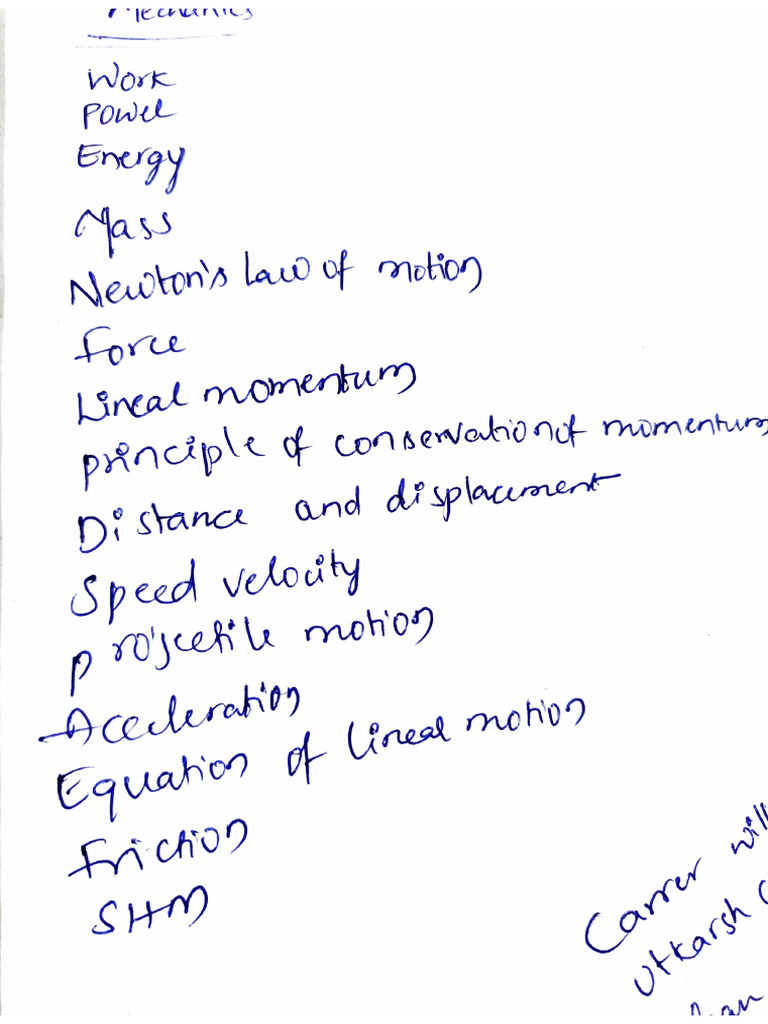 Mechanics
Work
Power
Energy
Mass
Newton's law of motion
force
Linear momentum
principle of conservation of momentum
Distance and displacement
Speed velocity
projectile motion
Acceleration
Equation of linear motion
friction
SHM
Carrer will
Utkarsh